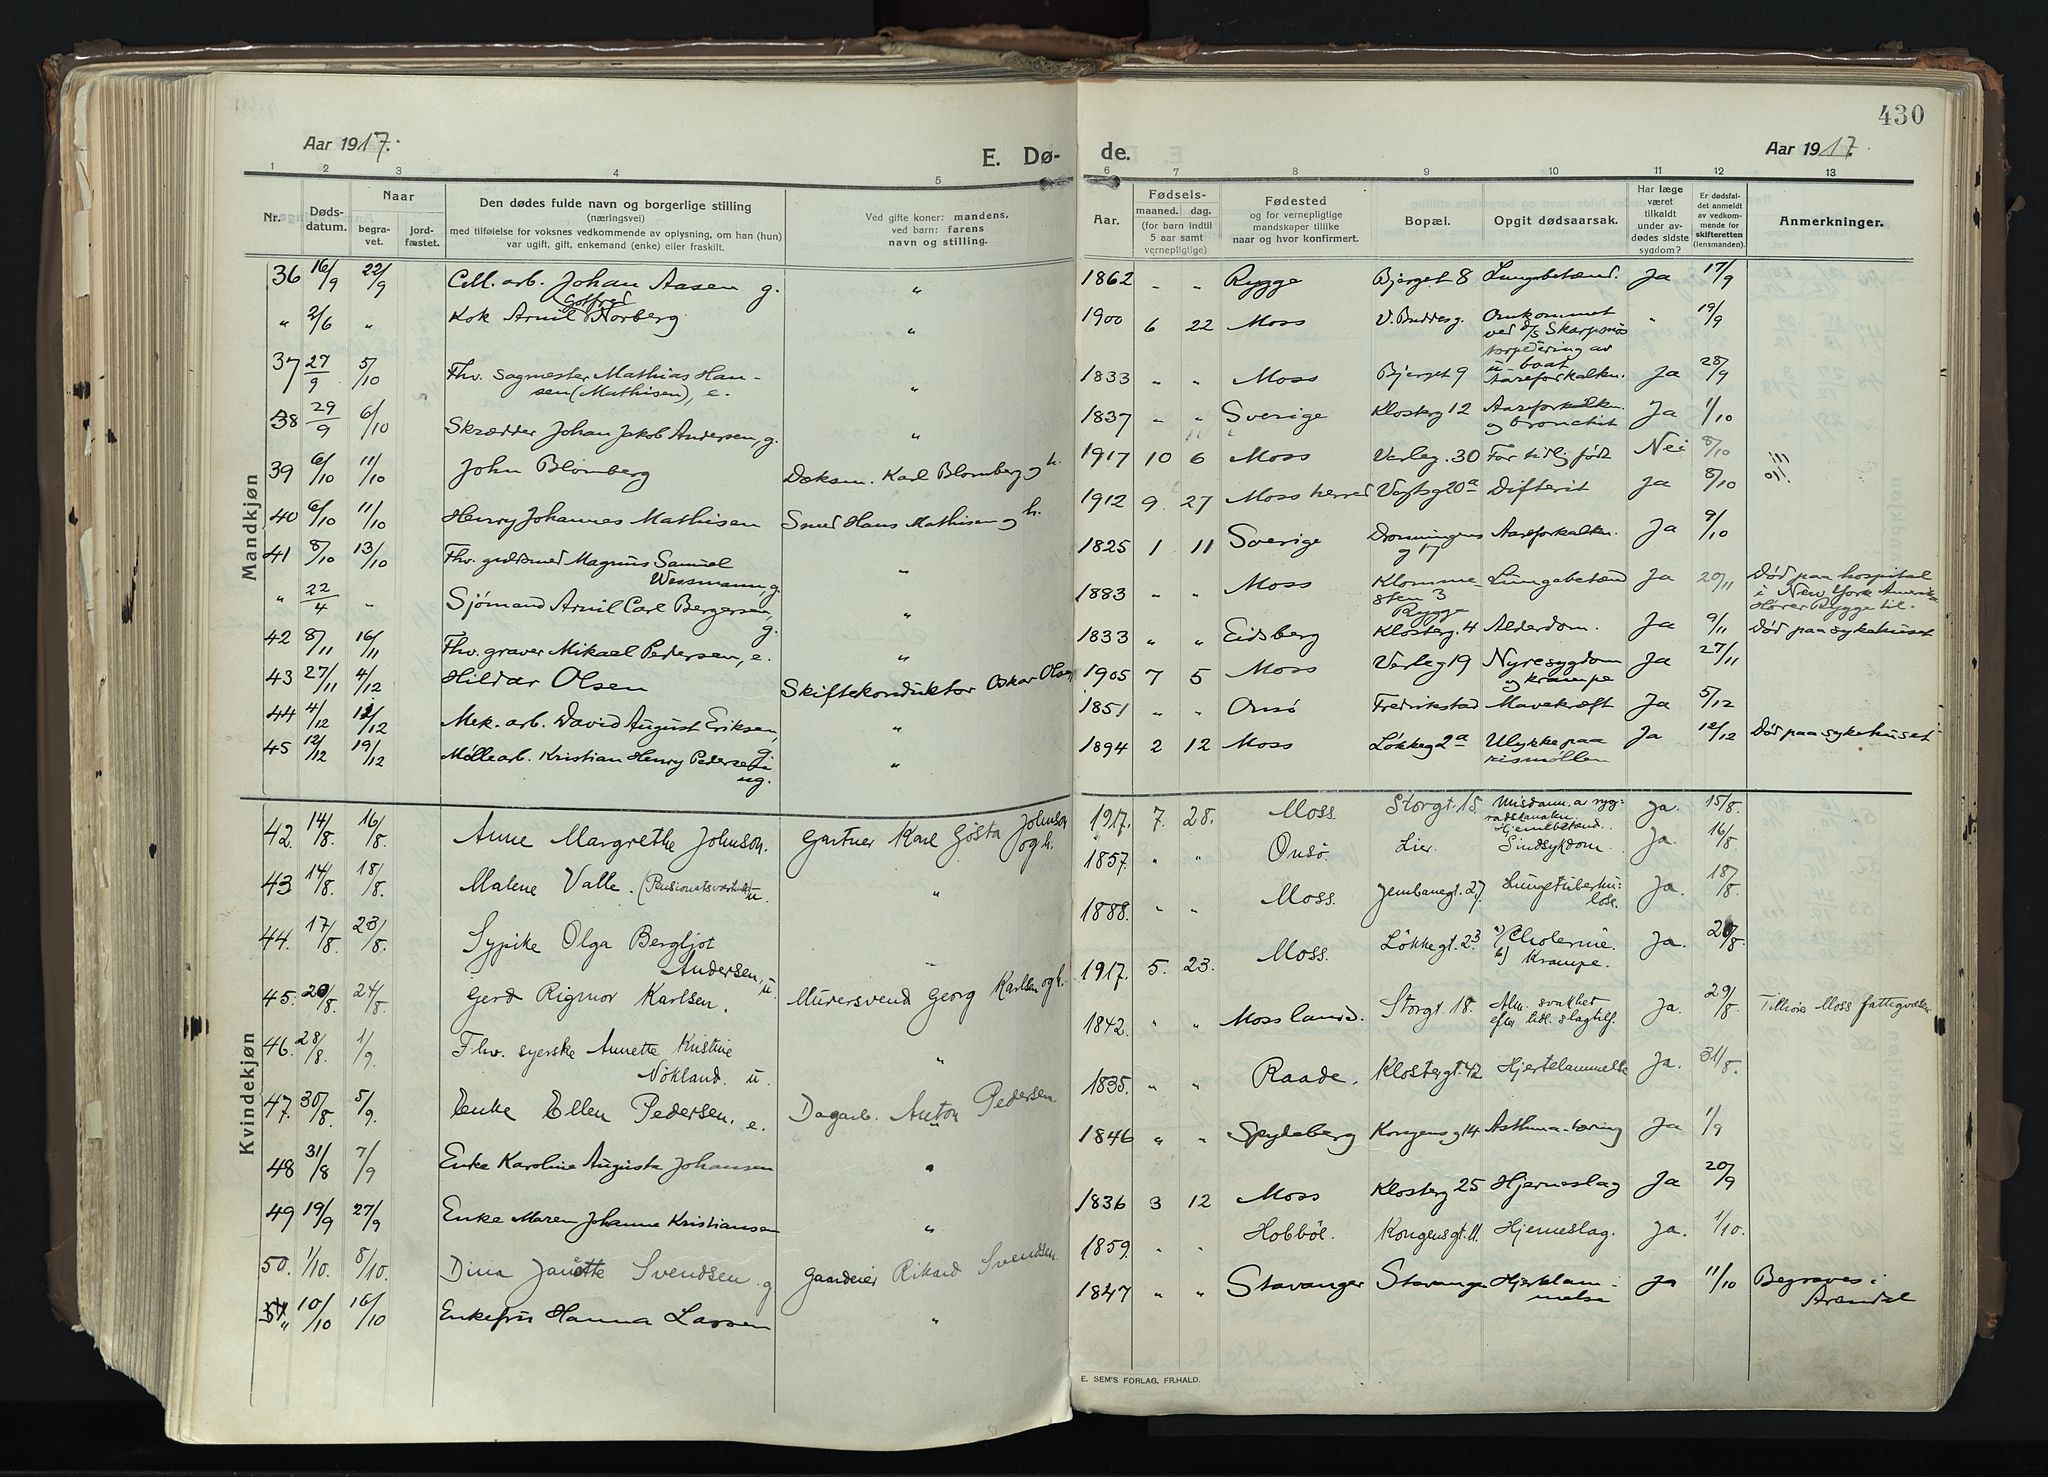 430
Aar 1917.
E. Dø-
de.
Aar 1917.
1 2 3 4 5 6 7 8 9 10 11 12 13
Nr.
Døds-
datum.
Naar
begra-
vet.
jord-
fæstet.
Den dødes fulde navn og borgerlige stilling
(næringsvei)
med tilføielse for voksnes vedkommende av oplysning, om han (hun)
var ugift, gift, enkemand (enke) eller fraskilt.
Ved gifte koner: mandens,
ved barn: farens
navn og stilling.
Aar.
Fødsels-
maaned. dag.
(for barn indtil
5 aar samt
vernepligtige)
Fødested
og for vernepligtige
mandskaper tillike
naar og hvor konfirmert.
Bopæl.
Opgit dødsaarsak.
Har læge
været
tilkaldt
under av-
dødes sidste
sygdom?
Er dødsfal-
det anmeldt
av vedkom-
mende for
skifteretten
(lensmanden).
Anmerkninger.
Mandkjøn
36 16/9 22/9 Cell. arb. Johan Aasen g. " 1862 - " Rygge Bjerget 8 Lungebetænd. Ja 17/9
Gotfred
" 2/6 " Kok Arnil Norberg " 1900 6 22 Moss V. Buddesg. Omkommet " 19/9
ved d/s Skarpsnos
torpedering av
u-baat
37 27/9 5/10 Fhv. sagmester Mathias Han- " 1833 " " Moss Bjerget 9 Aareforkalkn. Ja 28/9
sen (Mathisen), e.
38 29/9 6/10 Skrædder Johan Jakob Andersen, g. " 1837 - " Sverige Klosterg 12 Aareforkalkn. Ja 1/10
og bronchit
39 6/10 11/10 John Blomberg Dæksm. Karl Blomberg og h. 1917 10 6 Moss Varleg. 30 For tidlig født Nei 8/10
40 6/10 11/10 Henry Johannes Mathisen Smed Hans Mathisen og h. 1912 9. 27 Moss herred Vogtsg 20a Difterit Ja 8/10
41 8/10 13/10 Fhv. guldsmed Magnus Samuel " 1825 1 11 Sverige Dronningens Aareforkalkn. Ja 9/10
Wessmann, g. g 17
" 22/4 - Sjømand Arnil Carl Bergersen, " 1883 " " Moss Klomme- Lungebetænd Ja 20/11 Død paa hospital
g. sten 3 i New York Amerik
Rygge Hører Rygge til.
42 8/11 16/11 Fhv. graver Mikael Pedersen, e. " 1833 " " Eidsberg Klosterg. 4 Alderdom. Ja 9/11 Død paa sykehuset
43 27/11 4/12 Hildar Olsen Skiftekonduktør Oskar Olsen 1905 7 5 Moss Varleg 19 Nyresygdom Ja 27/11
og krampe
44 4/12 12/12 Mek. arb. David August Eriksen, " 1851 " " Onsø Fredrikstad Mavekræft Ja 5/12
g.
45 12/12 19/12 Møllearb. Kristian Henry Pedersen " 1894 2 12 Moss Løkkeg 2a Ulykke paa Ja 12/12 Død paa sykehuset
ug. rismøllen
Kvindekjøn
42. 14/8. 16/8. Anne Margrethe Johnson. Gartner Karl Gösta Johnson og h. 1917. 7. 28. Moss. Storgt. 15 Misdann. a ryg- ja. 15/8.
radskanalen
Hjernebetænd.
43 14/8. 18/8. Malene Valle. (Pensionatsværtinde) u. " 1857. " " Onsø. Lier. Sindsykdom. Ja. 16/8.
44. 17/8. 23/8. Sypike Olga Bergljot 1888. " " Moss. Jernbanegt. 27. Lungetuberku- Ja. 18/8.
Andersen, u. - løse.
45. 20/8. 24/8. Gerd Rigmor Karlsen. Murersvend Georg Karlsen og h. 1917. 5. 23. Moss. Løkkegt. 23 a) Cholerine. Ja. 20/8.
b) Krampe.
46. 28/8. 1/9. Fhv. syerske Annette Kristine " 1842. " " Moss landd. Storgt. 18. Alm. svakhet Ja. 29/8. Tilhører Moss fattigvæsen.
Nökland. u. efter tidl. slagtilf.
47. 30/8. 5/9. Enke Ellen Pedersen. e. Dagarb. Anton Pedersen. 1835. " " Raade. Klostergt. 42 Hjertelammelse Ja. 31/8.
48 31/8 7/9 Enke Karoline Augusta Johansen " 1846 " " Spydeberg Kongensg 14 Asthma-tæring Ja 1/9
49 19/9 27/9 Enke Maren Johanne Kristiansen " 1836 3 12 Moss Klosterg 25 Hjerneslag Ja 20/9
50. 1/10. 8/10. Dina Janette Svendsen g Gaardeier Rikard Svendsen 1859. " " Hobböl. Kongensgt. 11. Hjerneslag. Ja. 1/10.
" 10/10 16/10 Enkefru Hanna Larsen " 1847 " " Stavanger Stavanger Hjertelam- Ja 11/10 Begraves i
melse Arendal
E. SEM'S FORLAG, FR.HALD.